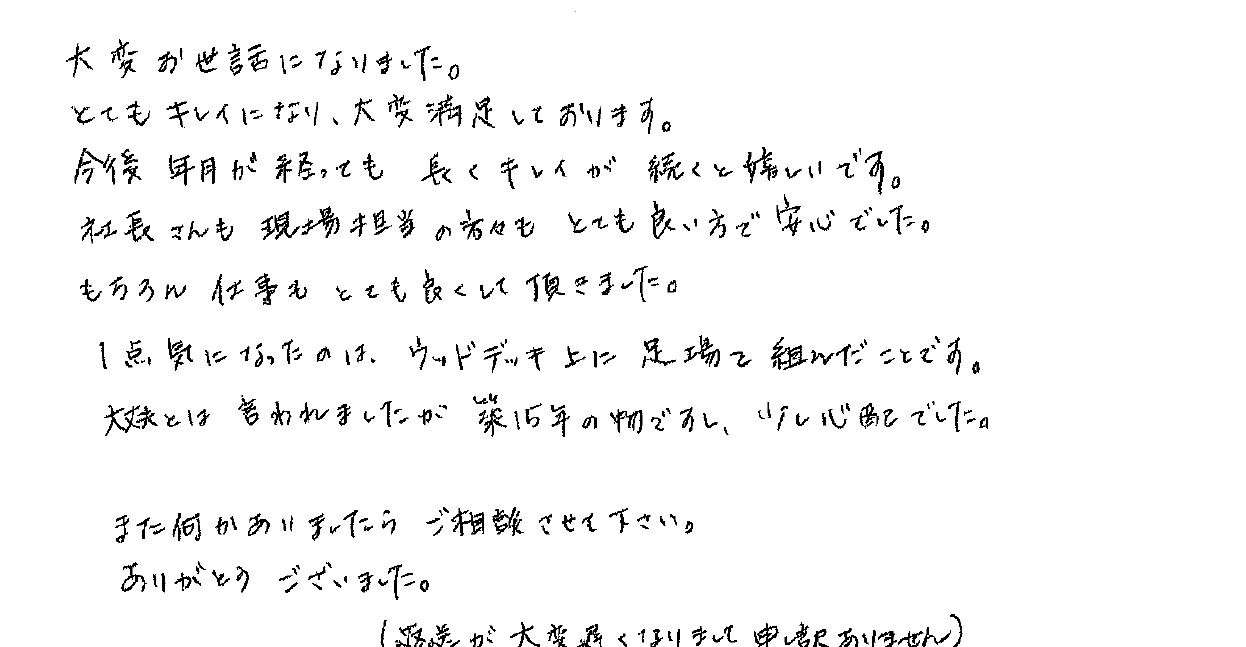 大変お世話になりました。
とてもキレイになり、大変満足しております。
今後年月が経っても長くキレイが続くと嬉しいです。
社長さんも現場担当の方々もとても良い方で安心でした。
もちろん仕事もとても良くして頂きました。
1点気になったのは、ウッドデッキ上に足場を組んだことです。
大丈夫とは言われましたが築15年の物ですし、少し心配でした。
また何かありましたらご相談させて下さい。
ありがとうございました。
(返送が大変遅くなりまして申し訳ありません)